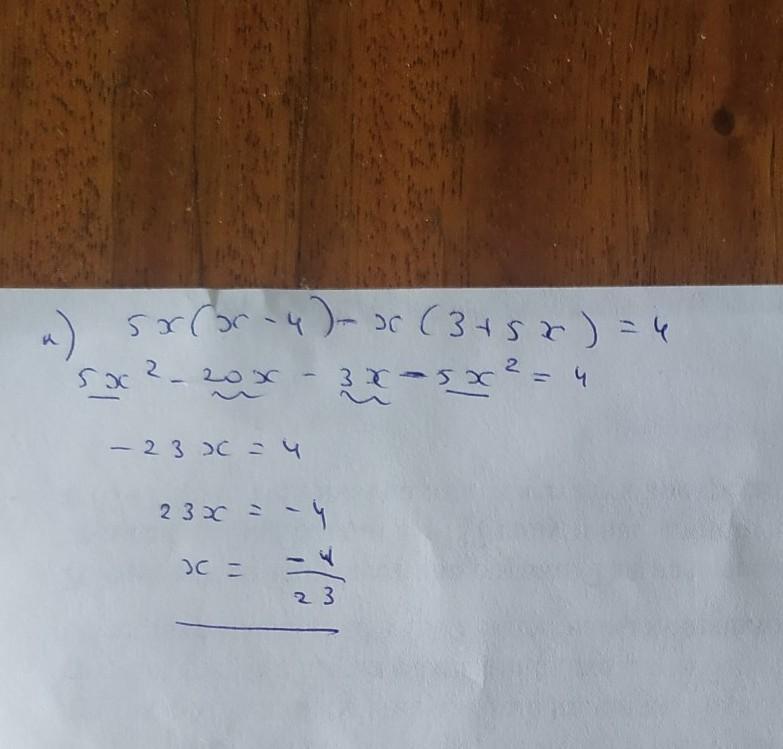 a) 5x(x-4)-x(3+5x)=4
5x²-20x-3x-5x²=4
-23x=4
23x=-4
x=-4/23